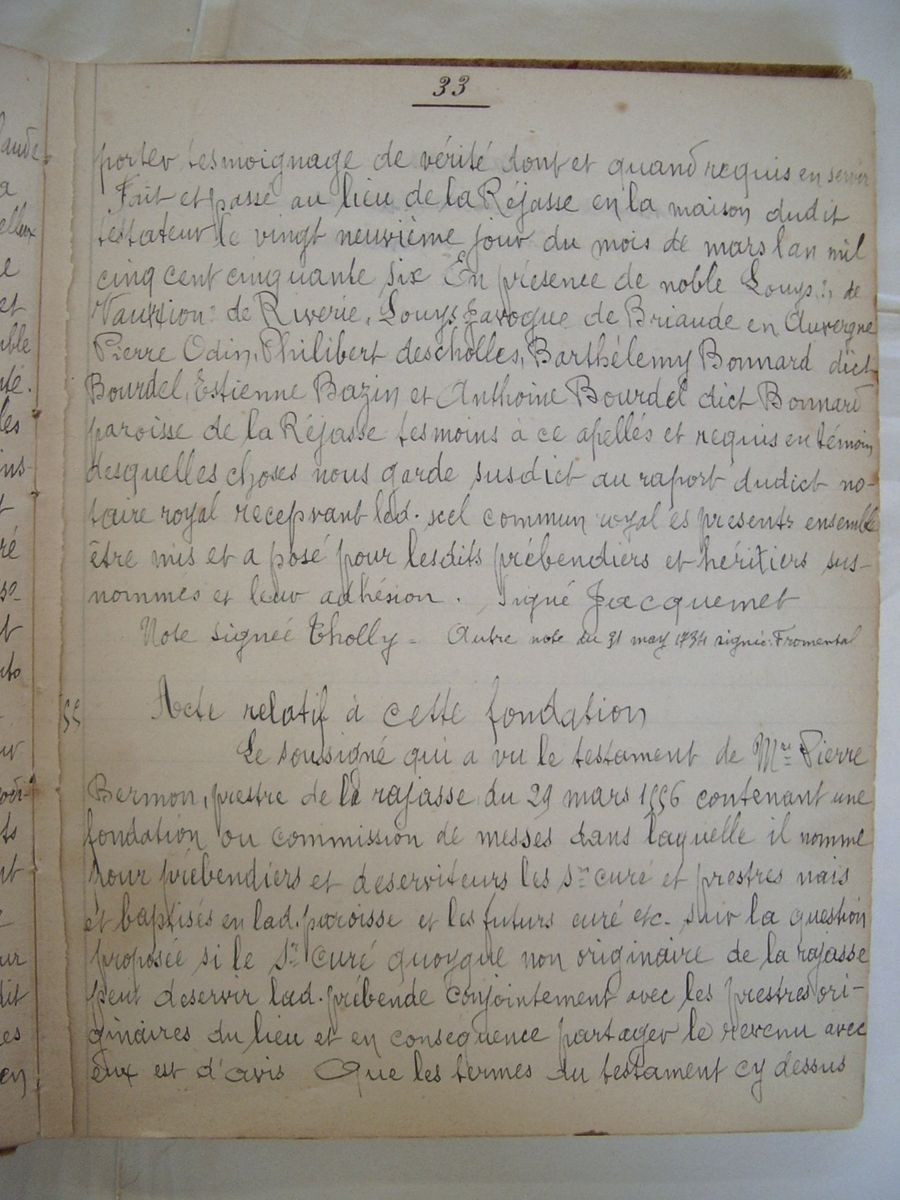 33
porter tesmoignage de vérité dont et quand requis en seront
Fait et passé au lieu de la Réjasse en la maison dudit
testateur le vingt neuvième jour du mois de mars lan mil
cinq cent cinquante six En présence de noble Louys de
de Riverie, Louys Javogue de Briaude en Auvergne
Pierre Odin, Philibert descholles, Barthélemy Bonnard dict
Bourdel, Estienne Bazin et Anthoine Bourdel dict Bonnard
paroisse de la Réjasse tesmoins à ce apellés et requis en témoin
desquelles choses nous garde susdict au raport dudict no-
taire royal recepvant led. scel commun royal es presents ensemble
être mis et a posé pour lesdits prébendiers et héritiers sus-
nommés et leur adhésion. Signé Jacquemet
Note signeé Tholly - Autre note du 31 may 1734 signée: Fromental
55 Acte relatif à cette fondation
Le soussigné qui a vu le testament de Mre Pierre
Bermon, prestre de la rajasse, du 29 mars 1556 contenant une
fondation ou commission de messes dans laquelle il nomme
pour prébendiers et deserviteurs les sr curé et prestres nais
et baptisés en lad. paroisse et les futurs curé etc. sur la question
proposée si le Sr curé quoyque non originaire de la rajasse
peut deservir lad. prébende conjointement avec les prestres ori-
ginaires du lieu et en conséquence partager le revenu avec
eux est d'avis Que les termes du testament cy dessus